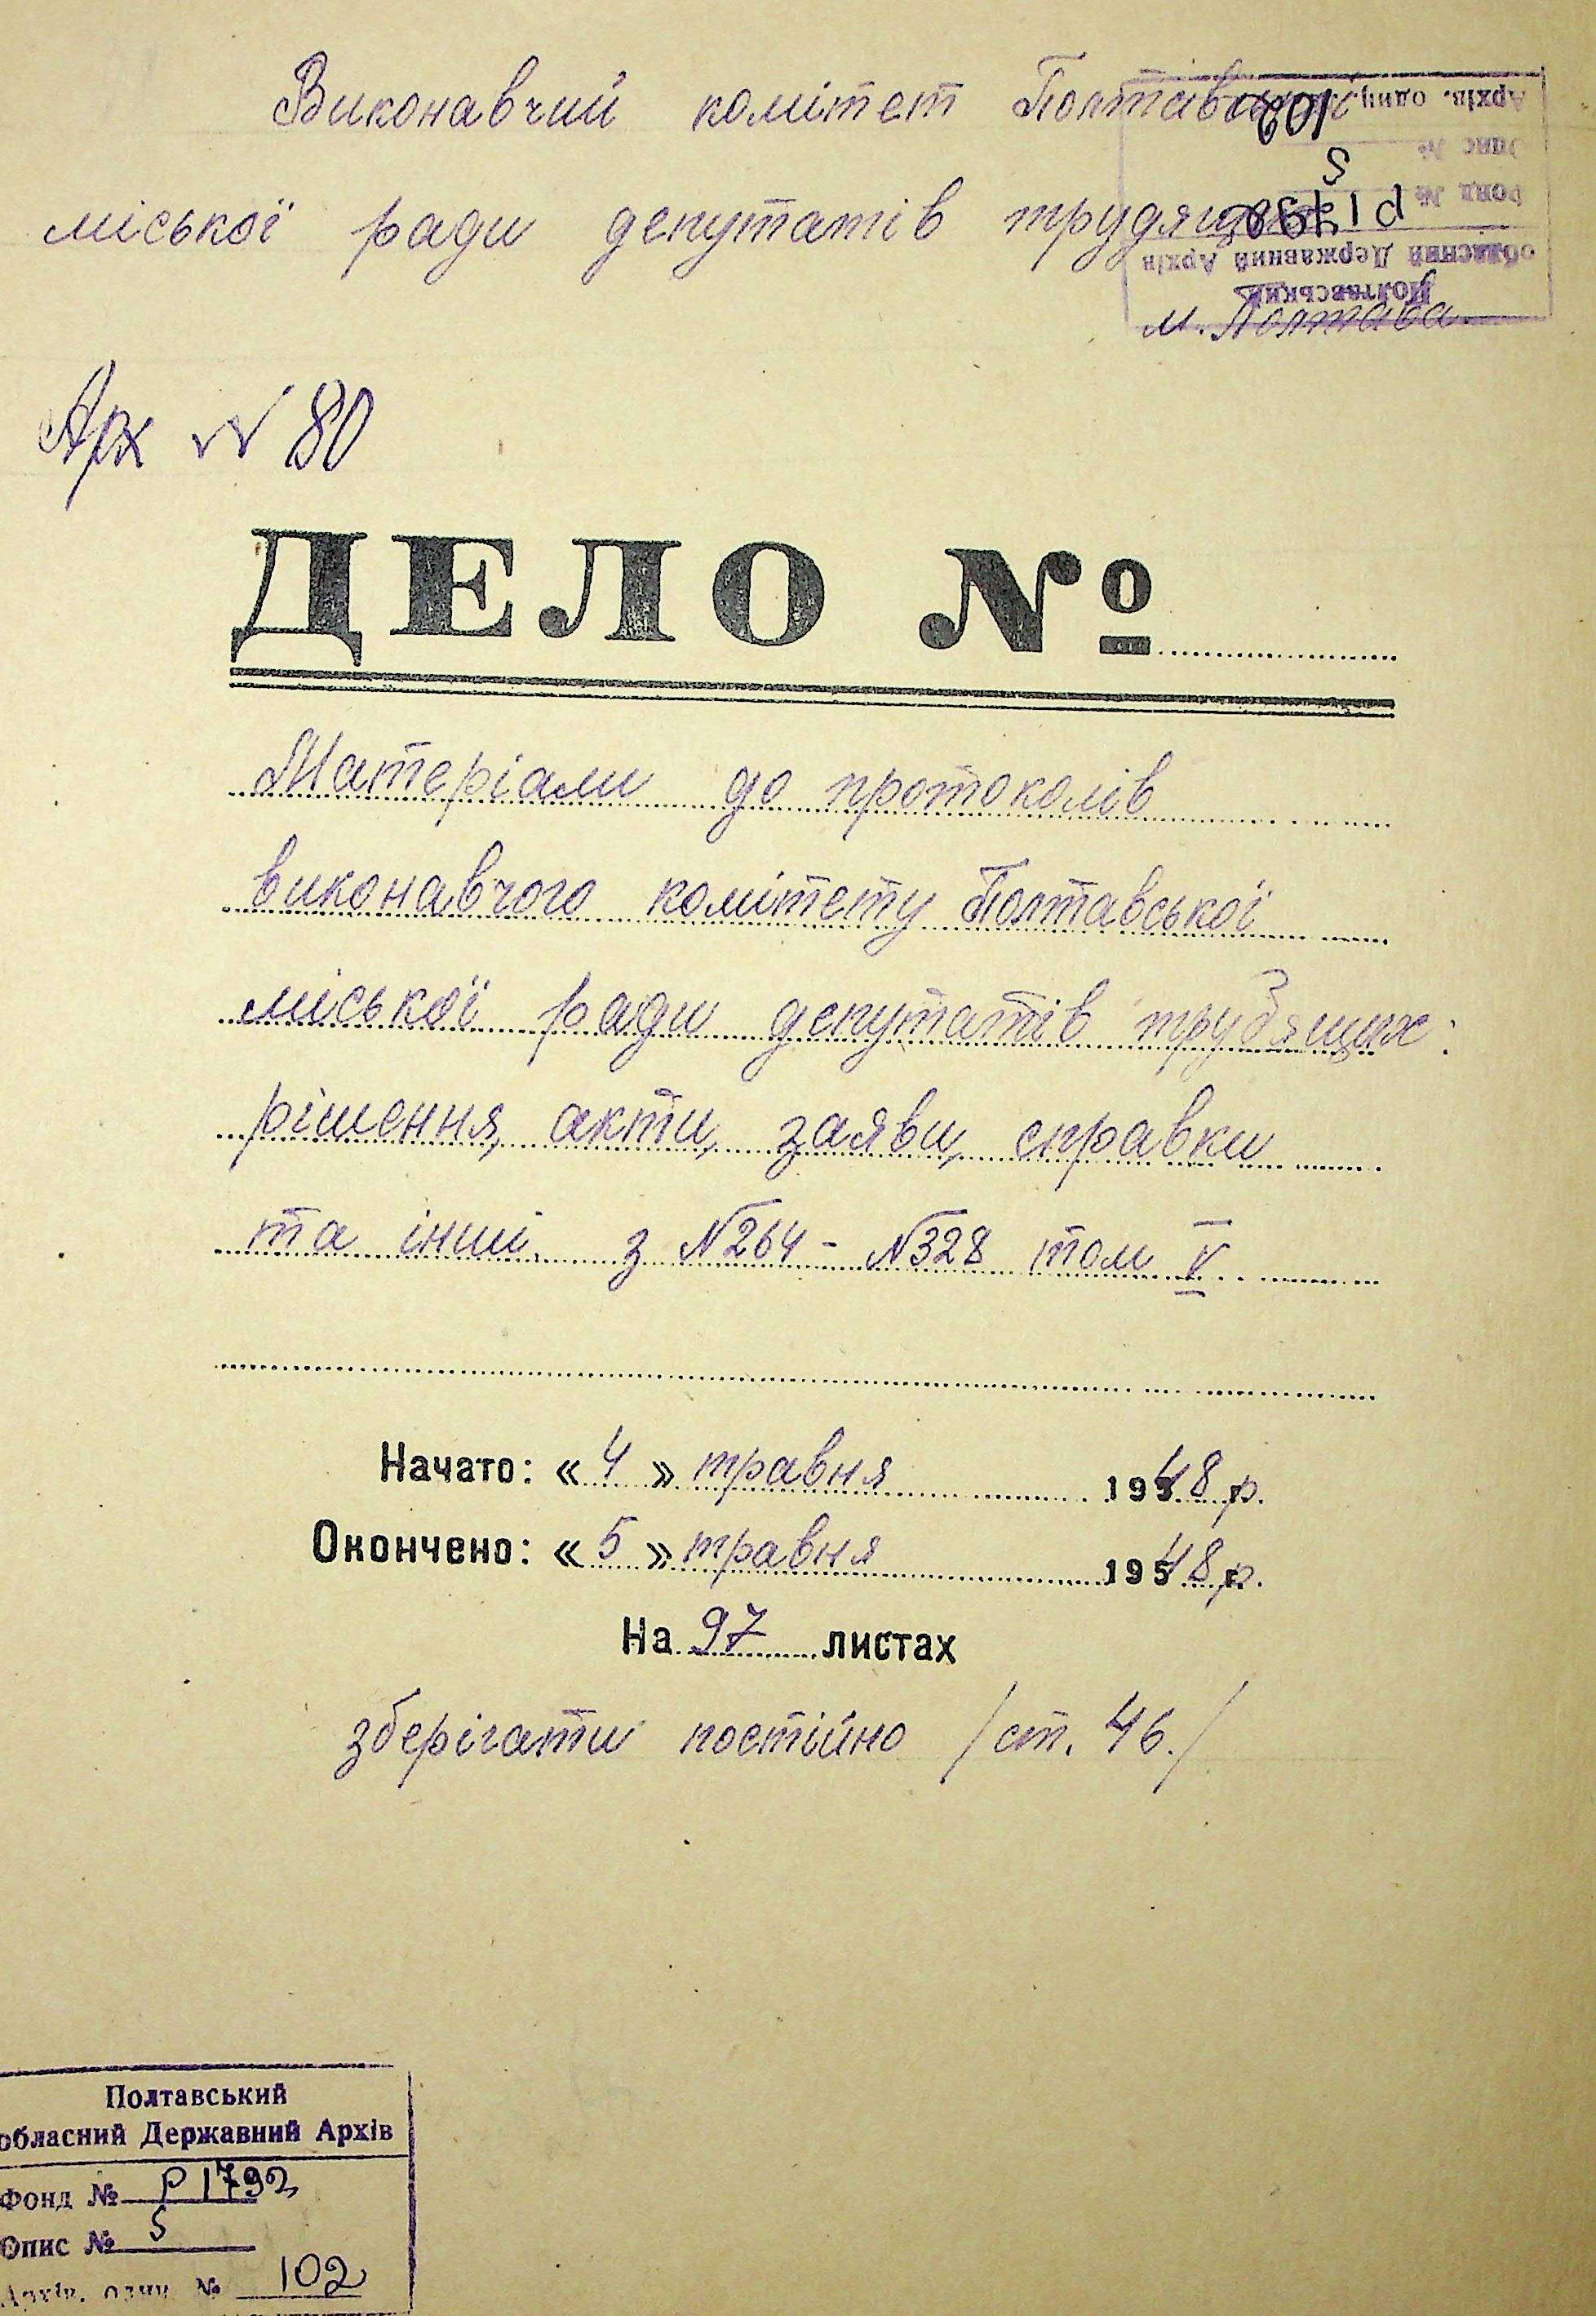 Виконавчий комітет Полтавської
міської ради депутатів трудящих
м. Полтава
Архів. одиц.
102
Опис №
5
Фонд №
Р1792
обласний Державний Архів
Полтавський
Арх № 80
ДЕЛО №
Матеріали до протоколів
виконавчого комітету Полтавської
міської ради депутатів трудящих:
рішення, акти, заяви, справки
та інші. з №264 - №328 том V
Начато: « 4 » травня 1948 р.
Окончено: « 5 » травня 1948 р.
На 97 листах
зберігати постійно /ст. 46./
Полтавський
обласний Державний Архів
Фонд № Р1792
Опис № 5
Архів. один № 102